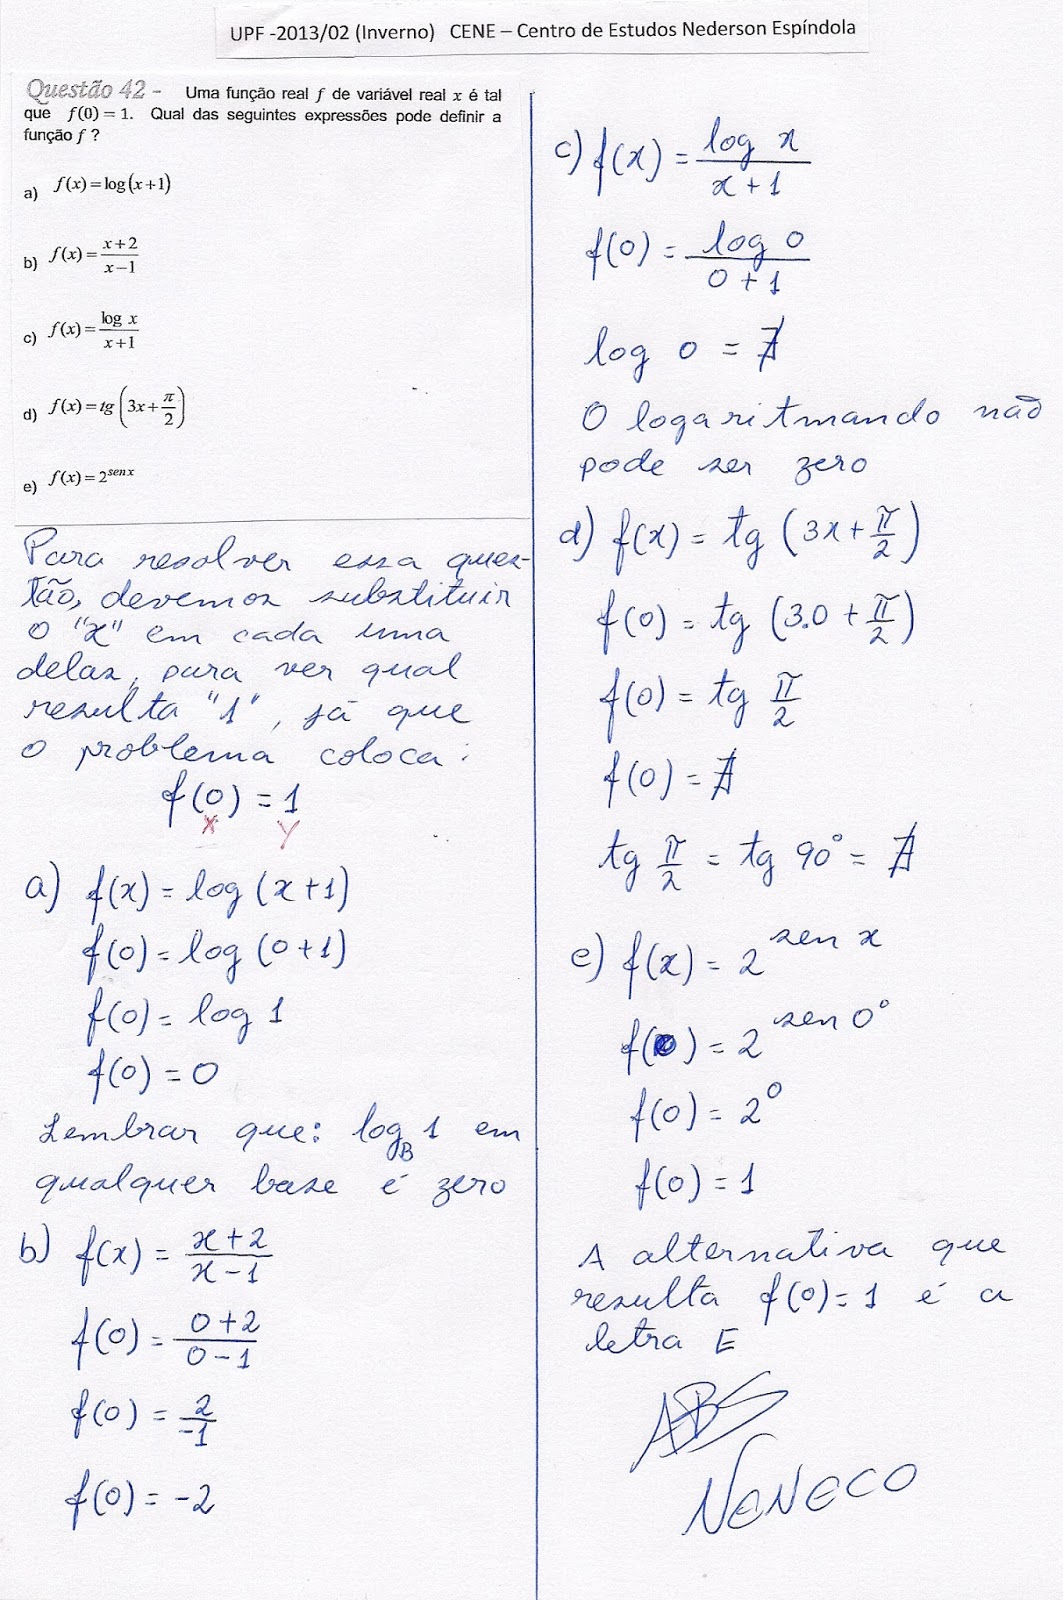 UPF -2013/02 (Inverno) CENE – Centro de Estudos Nederson Espíndola
Questão 42 - Uma função real f de variável real x é tal
que f(0) = 1. Qual das seguintes expressões pode definir a
função f ?
a) f(x) = log(x+1)
b) f(x) = (x+2)/(x−1)
c) f(x) = (log x)/(x+1)
d) f(x) = tg (3x + π/2)
e) f(x) = 2^(sen x)
Para resolver essa ques-
tão, devemos substituir
o "x" em cada uma
delas, para ver qual
resulta "1", já que
o problema coloca:
f(0) = 1
x y
a) f(x) = log (x+1)
f(0) = log (0+1)
f(0) = log 1
f(0) = 0
Lembrar que: log_B 1 em
qualquer base é zero
b) f(x) = (x+2)/(x-1)
f(0) = (0+2)/(0-1)
f(0) = 2/-1
f(0) = -2
c) f(x) = (log x)/(x+1)
f(0) = (log 0)/(0+1)
log 0 = ∄
O logaritmando não
pode ser zero
d) f(x) = tg (3x + π/2)
f(0) = tg (3.0 + π/2)
f(0) = tg π/2
f(0) = ∄
tg π/2 = tg 90° = ∄
e) f(x) = 2^(sen x)
f(0) = 2^(sen 0°)
f(0) = 2^0
f(0) = 1
A alternativa que
resulta f(0) = 1 é a
letra E
ABS
NENECO